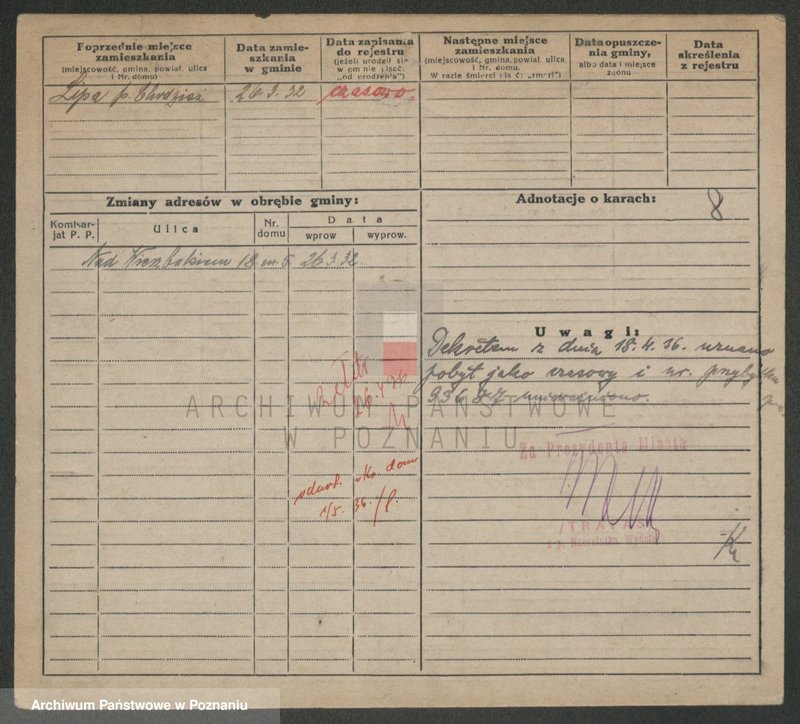 Poprzednie miejsce zamieszkania
(miejscowość, gmina, powiat, ulica i Nr. domu)
Data zamieszkania w gminie
Data zapisania do rejestru
(jeżeli urodził się w gminie pisać: „od urodzenia")
Następne miejsce zamieszkania
(miejscowość, gmina, powiat, ulica i Nr. domu.
W razie śmierci pisać: „zmarł")
Data opuszczenia gminy,
albo data i miejsce zgonu
Data skreślenia z rejestru
Lipa p. 26.3.32 czasowo
Zmiany adresów w obrębie gminy:
Adnotacje o karach: 8
Komisarjat P. P.
Ulica
Nr. domu
Data
wprow.
wyprow.
Nad Wierzbakiem 18 m 5 26.3.32.
Uwagi:
Dekretem z dnia 18.4.36. uznano
pobyt jako czasowy i nr.
936.87 unieważniono.
26.
1/5. 36.
ARCHIWUM PAŃSTWOWE
W POZNANIU
Za Prezydenta Miasta
Archiwum Państwowe w Poznaniu